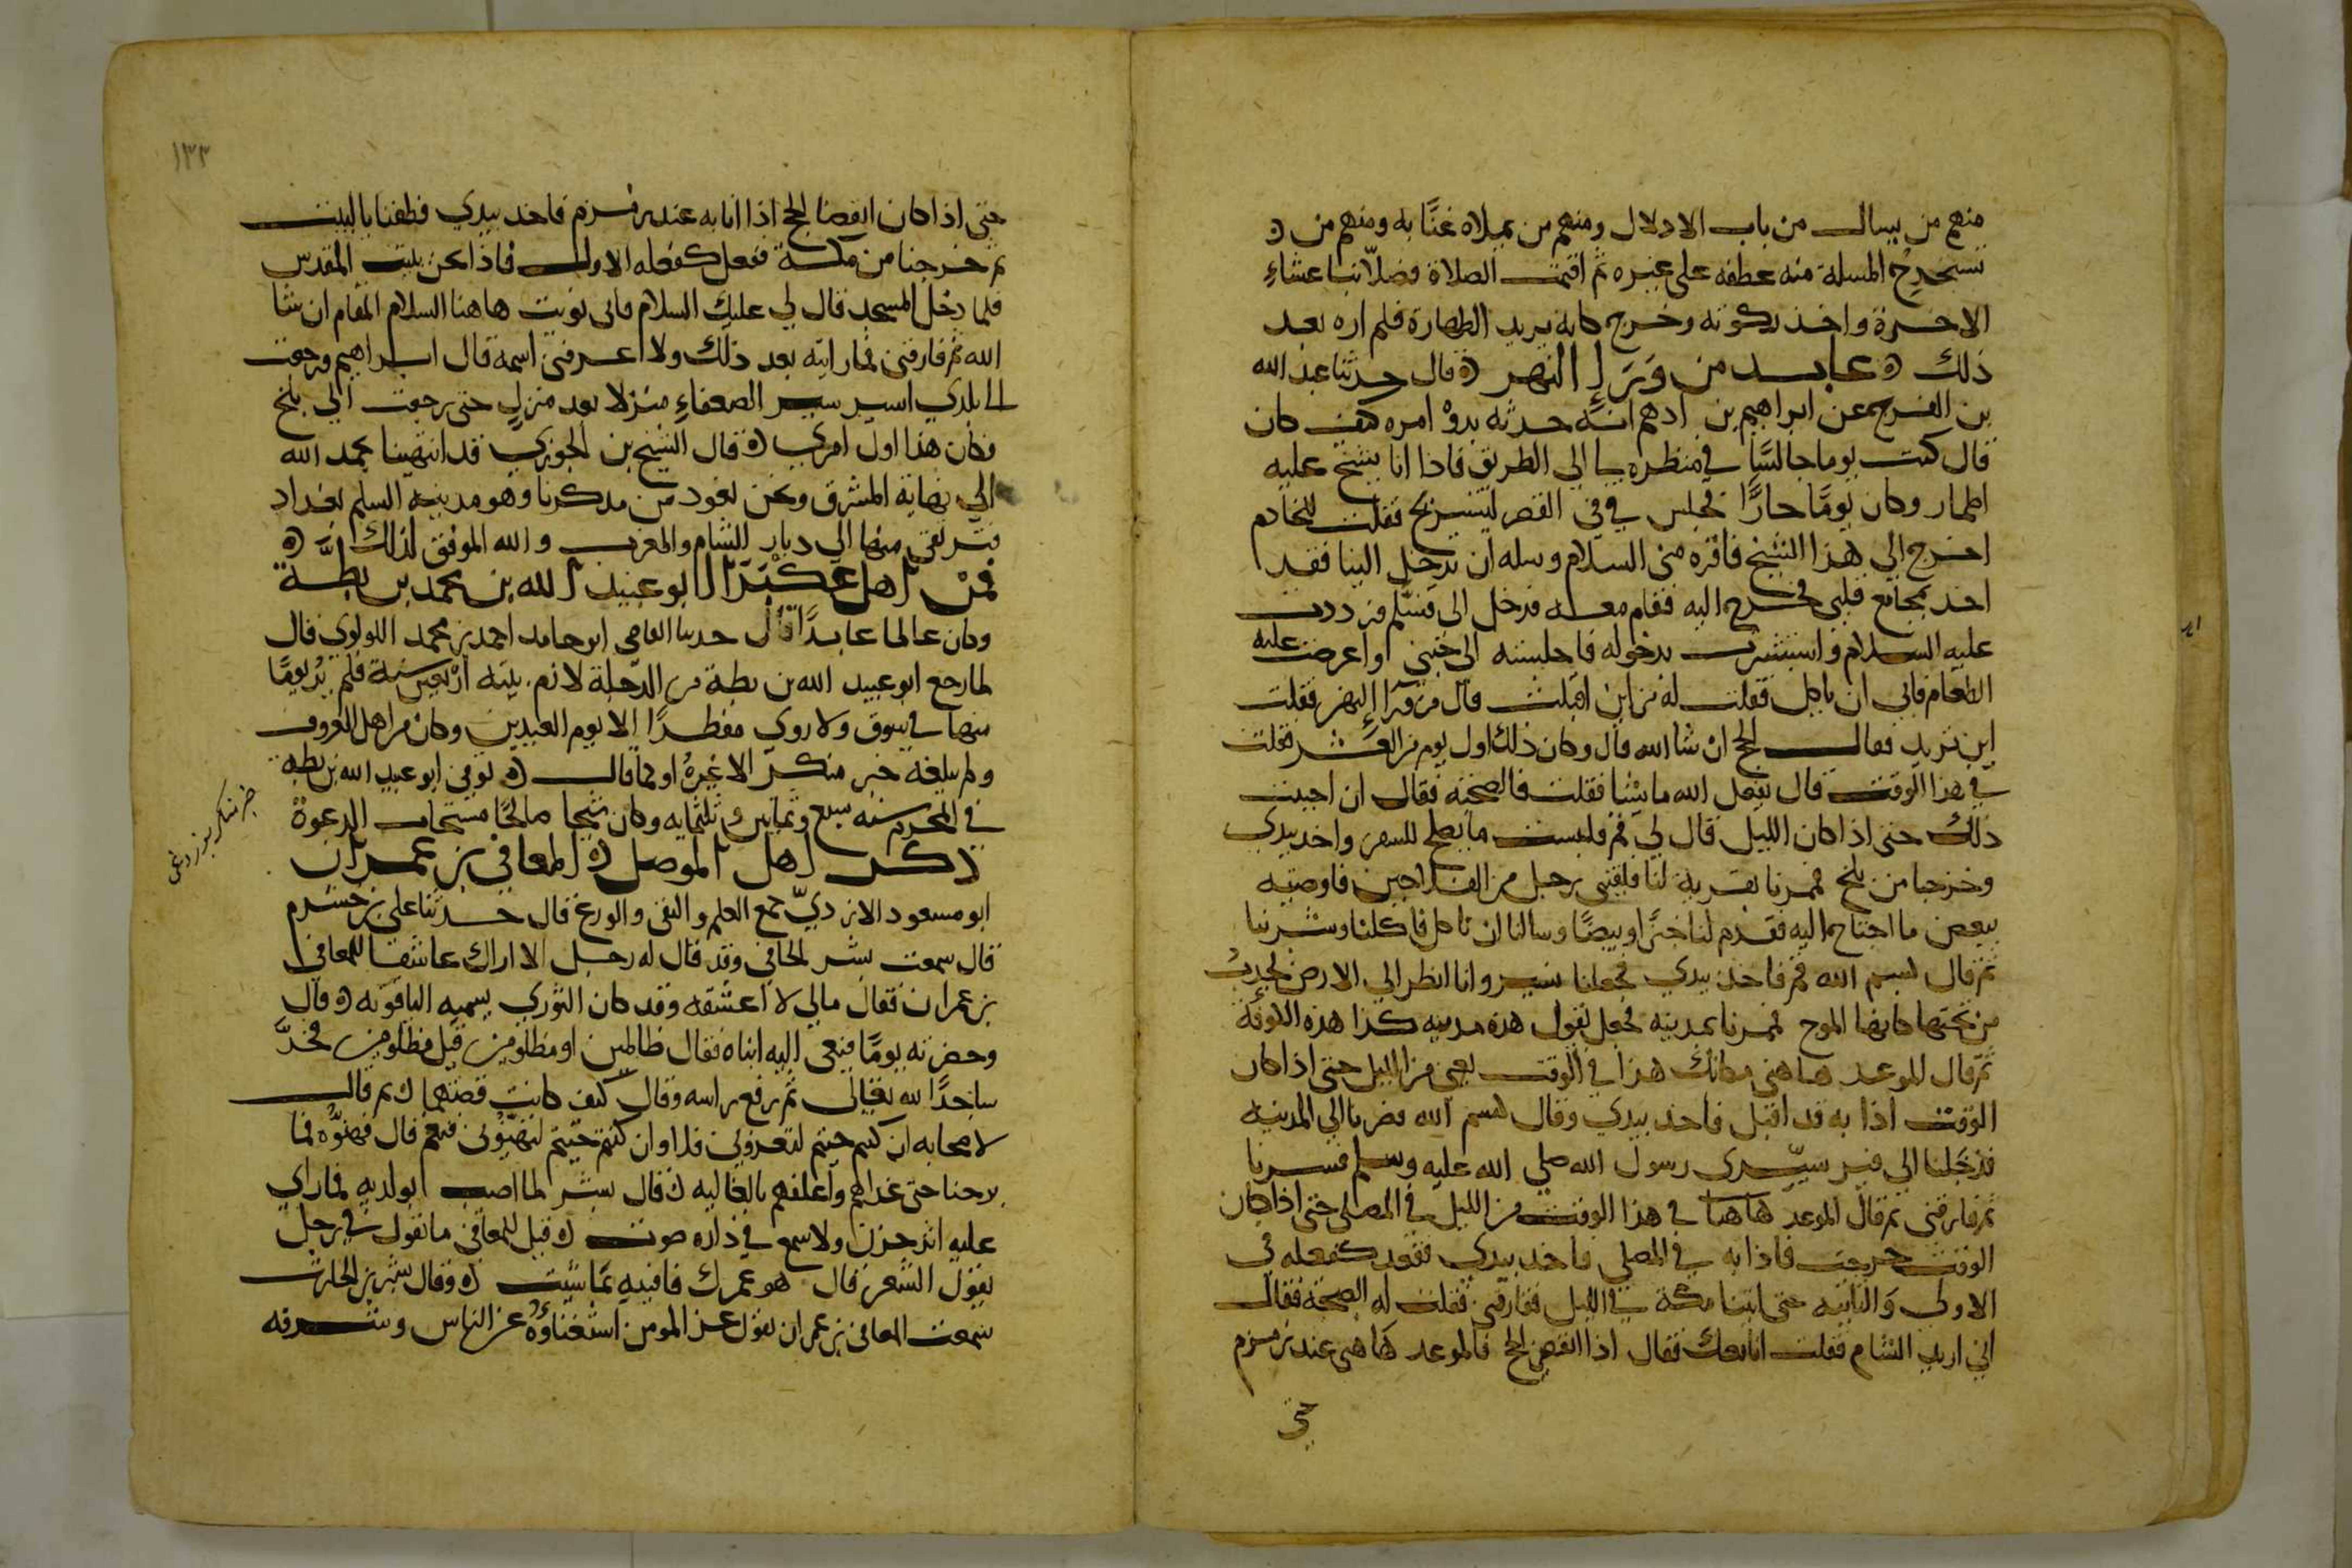 منهم من يسال من باب الادلال ومنهم من يملاه غنًا به ومنهم من ه
يستخرج المسلة منه عطفه على غيره ثم اقيمت الصلاة فصلا بنا عشاء
الاخرة واخذ ركوته وخرج كانه يريد الطهارة فلم اره بعد
ذلك ه عابد من وَرَاءِ النهر ه قال حدثنا عبد الله
بن الفرج عن ابراهيم بن ادهم انه حدثه بدؤ امره كيف كان
قال كنت يوما جالسًا في منظره لي الى الطريق فاذا انا بشيخ عليه
اطمار وكان يومًا حارًا فجلس في في القصر ليستريح فقلت للخادم
اخرج الي هذا الشيخ فاقره مني السلام وسله ان يدخل الينا فقد
اخذ بمجامع قلبي فخرج اليه فقام معه فدخل الي فسلم فرددت
عليه السلام واستبشرت بدخوله فاجلسته الى جنبي وعرضت عليه
الطعام فابى ان ياكل فقلت له من اين اقبلت قال من ورا النهر فقلت
اين تريد فقال الحج ان شا الله قال وكان ذلك اول يوم من العشر فقلت
في هذا الوقت قال يفعل الله ما يشا فقلت فالصحبة فقال ان احببت
ذلك حتى اذا كان الليل قال لي قم فلبست ما يصلح للسفر واخذ بيدي
وخرجنا من بلخ فمررنا بقرية لنا فلقيني رجل من الفلاحين فاوصيته
ببعض ما احتاج اليه فقدم لنا خبزًا وبيضًا وسالنا ان ناكل فاكلنا وشربنا
ثم قال بسم الله قم فاخذ بيدي فجعلنا نسير وانا انظر الي الارض تجذب
من تحتها كانها الموج فمررنا بمدينه فجعل يقول هذه مدينه كذا هذه الكوفة
ثم قال الموعد هاهنى مكانك هذا في الوقت يعني من الليل حتى اذا كان
الوقت اذا به قد اقبل فاخذ بيدي وقال بسم الله فصرنا الي المدينه
فدخلنا الي قبر سيدي رسول الله صلي الله عليه وسلم فسرنا
ثم فارقني ثم قال الموعد هاهنا في هذا الوقت من الليل في المصلى حتى اذا كان
الوقت خرجت فاذا به في المصلي فاخذ بيدي ففعل كفعله في
الاولى والثانيه حتى اتينا مكة في الليل ففارقني فقلت له الصحبة فقال
اني اريد الشام فقلت انا معك فقال اذا انقضى الحج فالموعد هاهنى عند زمزم
حتى
١٣٣
حتى اذا كان انقضا الحج اذا انا به عند زمزم فاخذ بيدي فطفنا بالبيت
ثم خرجنا من مكة ففعل كفعله الاول فاذا نحن ببيت المقدس
فلما دخل المسجد قال لي عليك السلام فاني نويت هاهنا السلام المقام ان شا
الله ثم فارقني فما رايته بعد ذلك ولا عرفني اسمه قال ابراهيم ورجعت
الي بلدي اسير سير الضعفاء منزلا بعد منزلٍ حتى رجعت الي بلخ
فكان هذا اول امري ه قال الشيخ بن الجوزي قد انتهينا بحمد الله
الي نهاية المشرق ونحن نعود من مركزنا وهو مدينه السلم بغداد
فنرتقي منها الي ديار الشام والمغرب والله الموفق لذلك ه
فمن اهل عكبرا ابو عبيد الله بن محمد بن بطة
وكان عالما عابدًا قال حدثنا القاضي ابو حامد احمد بن محمد اللولوي قال
لما رجع ابو عبيد الله بن بطة من الرحلة لازم بيته اربعين سنة فلم يُر يومًا
منها في سوق ولا روي مفطرًا الا يوم العيدين وكان من اهل المعروف
ولم يبلغه خبر منكر الا غيره او كما قال ه توفي ابو عبيد الله بن بطه
في المحرم سنه سبع وثمانين وثلثمايه وكان شيخا صالحًا مستجاب الدعوة
ذكر اهل الموصل ه المعافى بن عمران
ابو مسعود الازديّ جمع العلم والتقى والورع قال حدثنا علي بن خشرم
قال سمعت بشر الحافي وقد قال له رجل الا اراك عاشقا للمعافى
بن عمران فقال مالي لا اعشقه وقد كان الثوري يسميه الياقوته ه قال
وحضرته يومًا فنعى اليه ابناه فقال ظالمين او مظلومين قيل مظلومين فخرَّ
ساجدًا لله تعالى ثم رفع راسه وقال كيف كانت قصتهما ه ثم قال
لاصحابه ان كنتم جيتم لتعزوني فلا وان كنتم جيتم لتهنّوني فنعم قال فهنوه فما
برحنا حتى غداهم واغلفهم بالغاليه ه قال بشر لما اصيب بولديه فما راي
عليه اثر حزن ولا سمع في داره صوت ه قيل للمعافى ما تقول في رجل
يقول الشعر قال هو عمرك فافنيه بما شيت ه وقال بشر بن الحارث
سمعت المعافى بن عمران يقول عز المومن استغناؤه عن الناس وشرفه